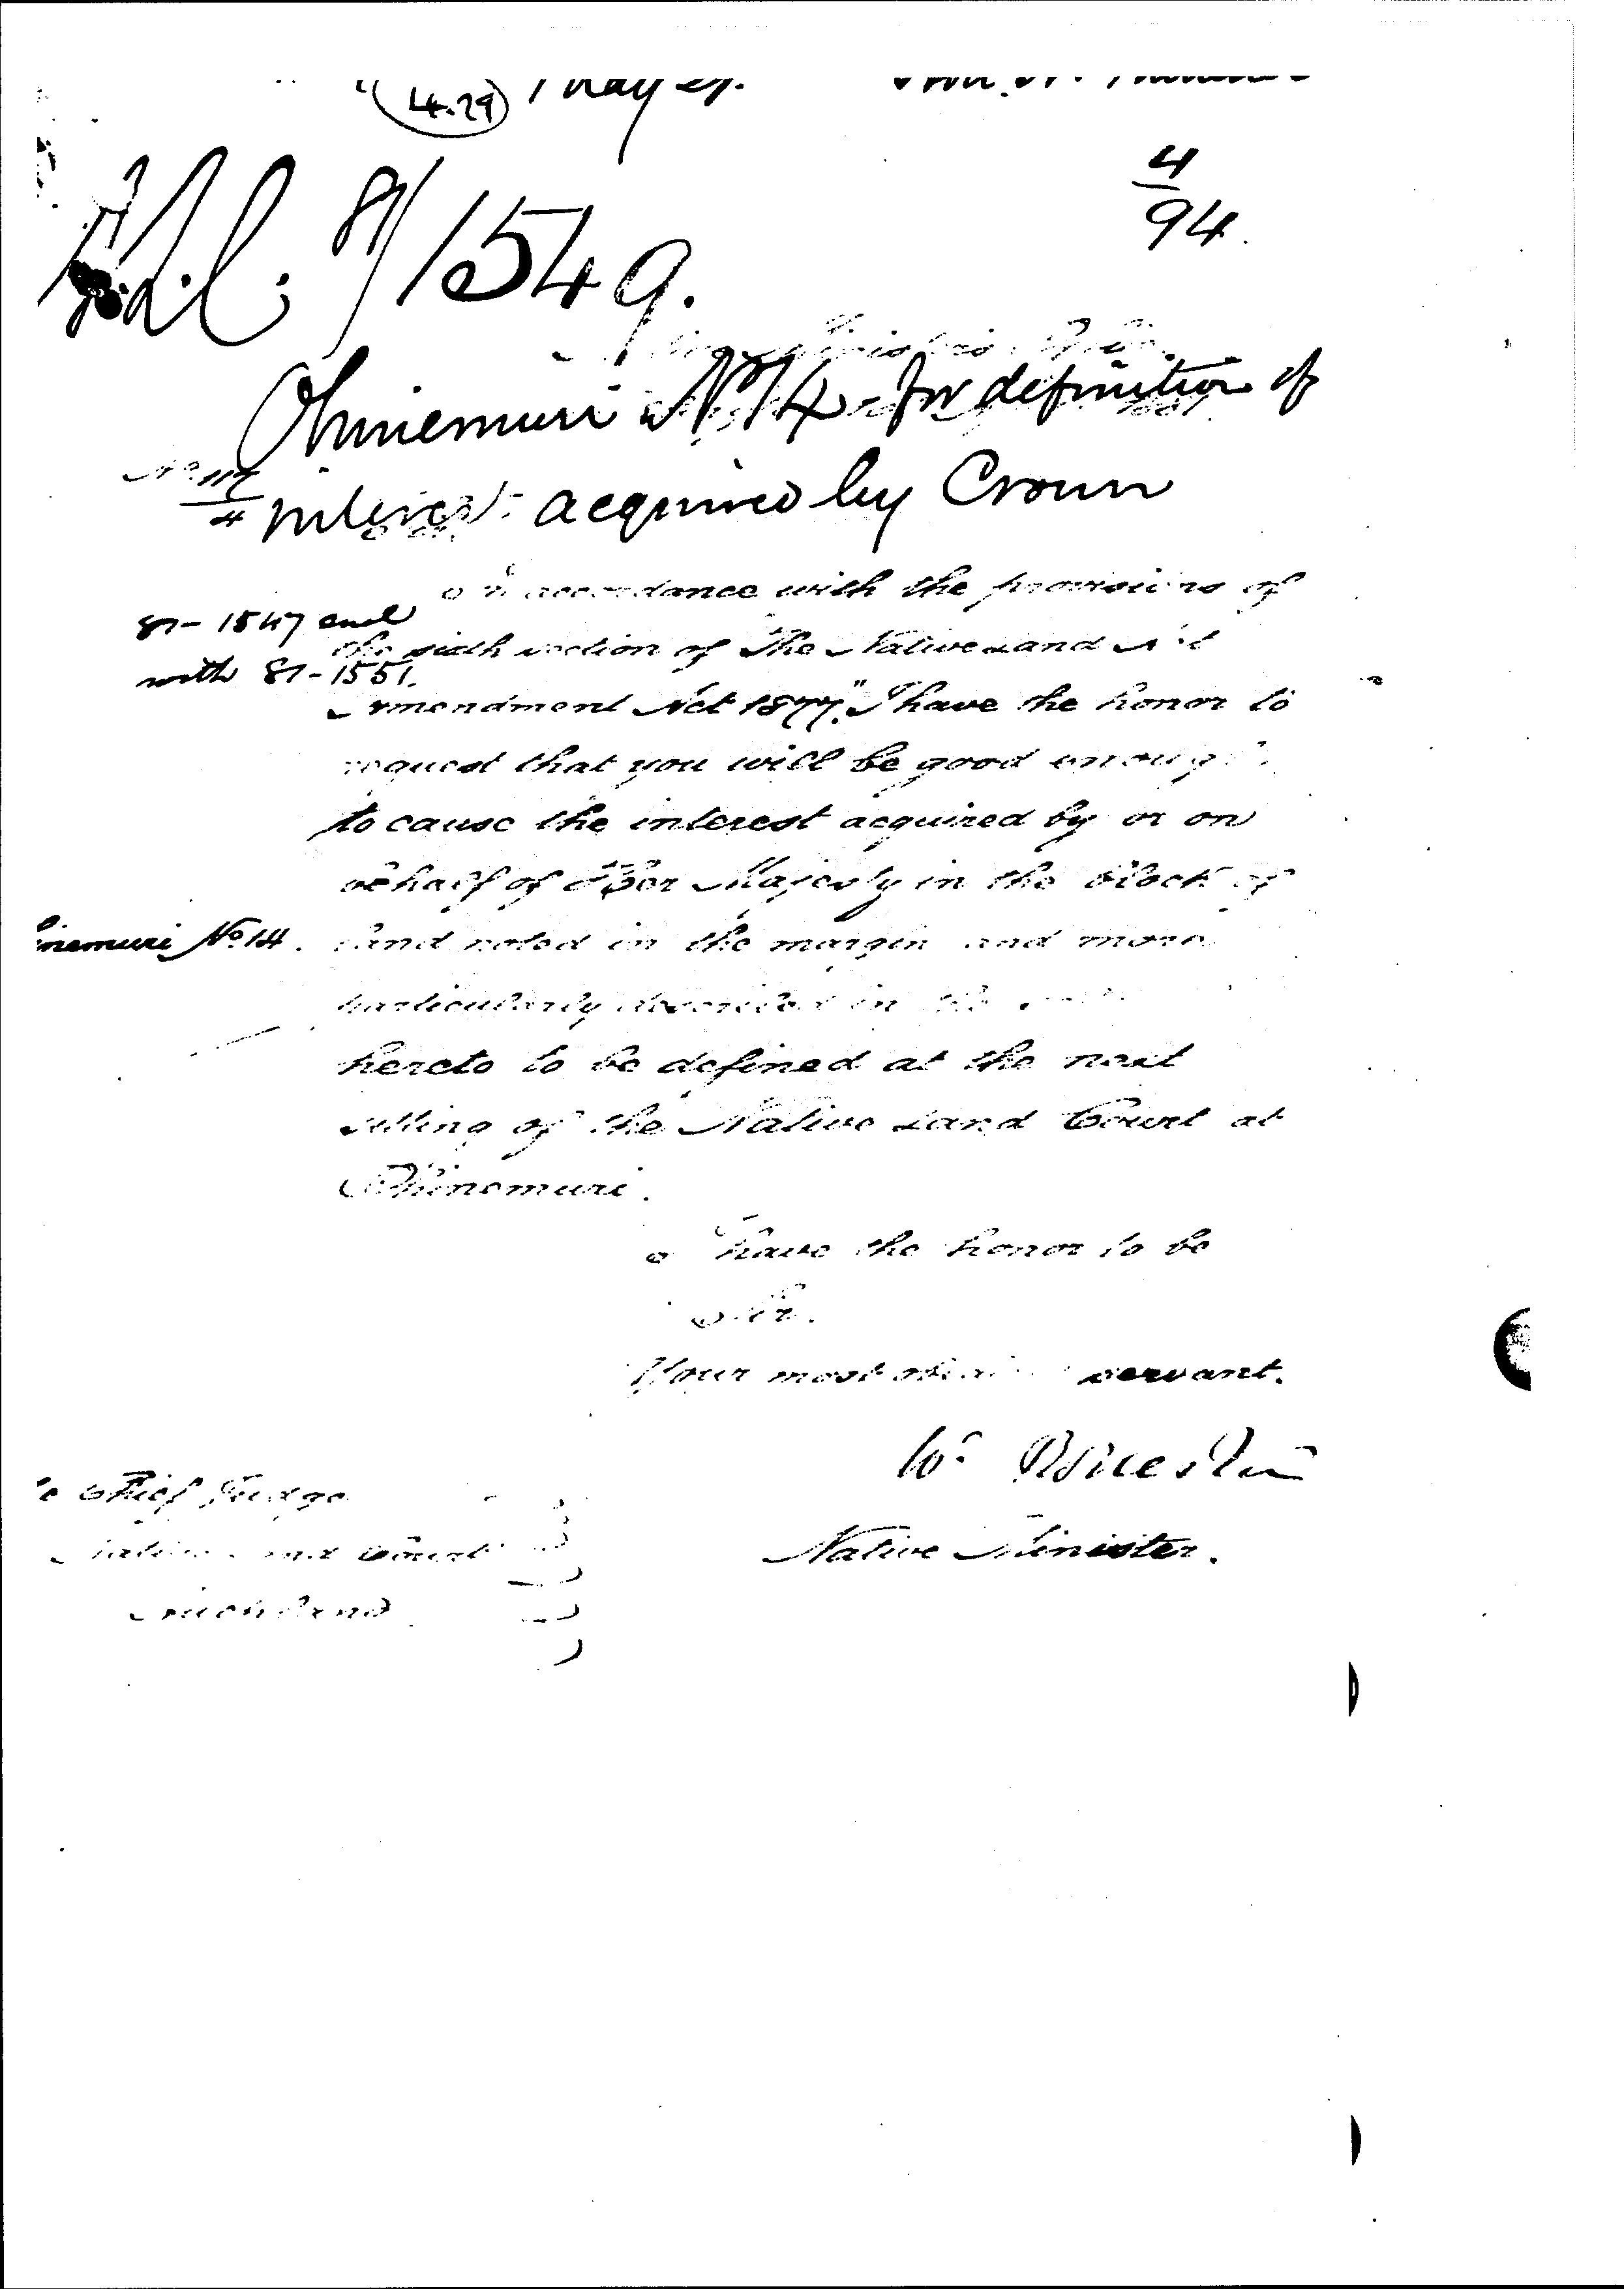 4.29
4
94.
81/1549.
Ohinemuri No 14 - for definition of
interest acquired by Crown
No 117
4
In accordance with the provisions of
81-1547 and
the sixth section of The Native Land Act
with 81-1551.
Amendment Act 1877." I have the honor to
request that you will be good enough
to cause the interest acquired by or on
behalf of Her Majesty in the block of
inemuri No 14. land noted in the margin and more
particularly described in the
hereto to be defined at the next
sitting of the Native Land Court at
Ohinemuri.
I have the honor to be
Sir.
Your most obedient servant.
Native Minister.
e Chief Judge
Native Land Court
Auckland